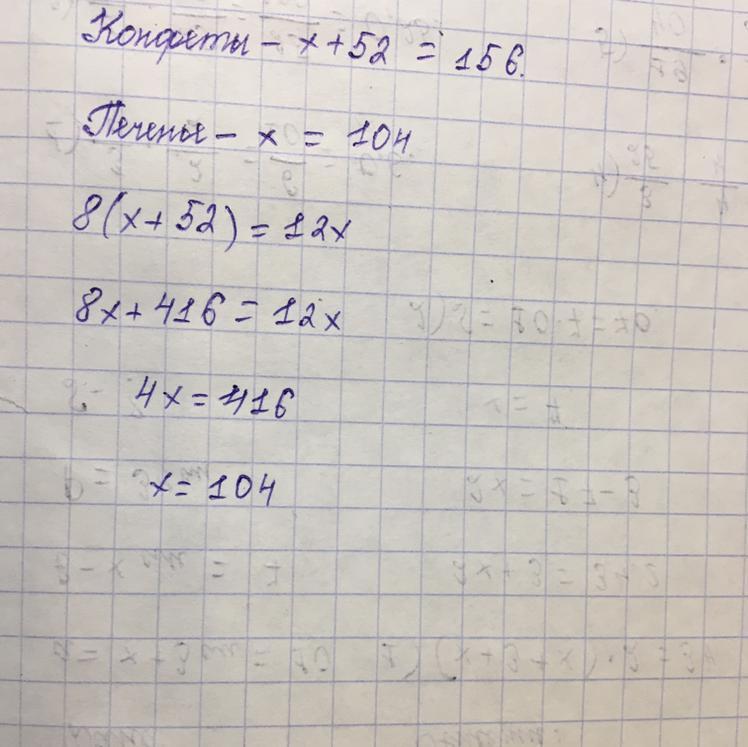 Конфеты - x + 52 = 156.
Печенье - x = 104
8(x + 52) = 12x
8x + 416 = 12x
4x = 416
x = 104